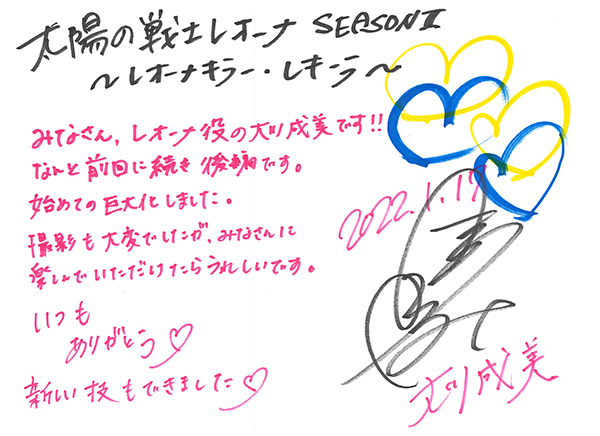 太陽の戦士レオーナ SEASONⅡ
～レオーナキラー・レキーラ～
みなさん、レオーナ役の大川成美です!!
なんと前回に続き後編です。
始めての巨大化しました。
撮影も大変でしたが、みなさんに
楽しんでいただけたらうれしいです。
いつも
ありがとう♡
新しい技もできました♡
2022.1.17
大川成美